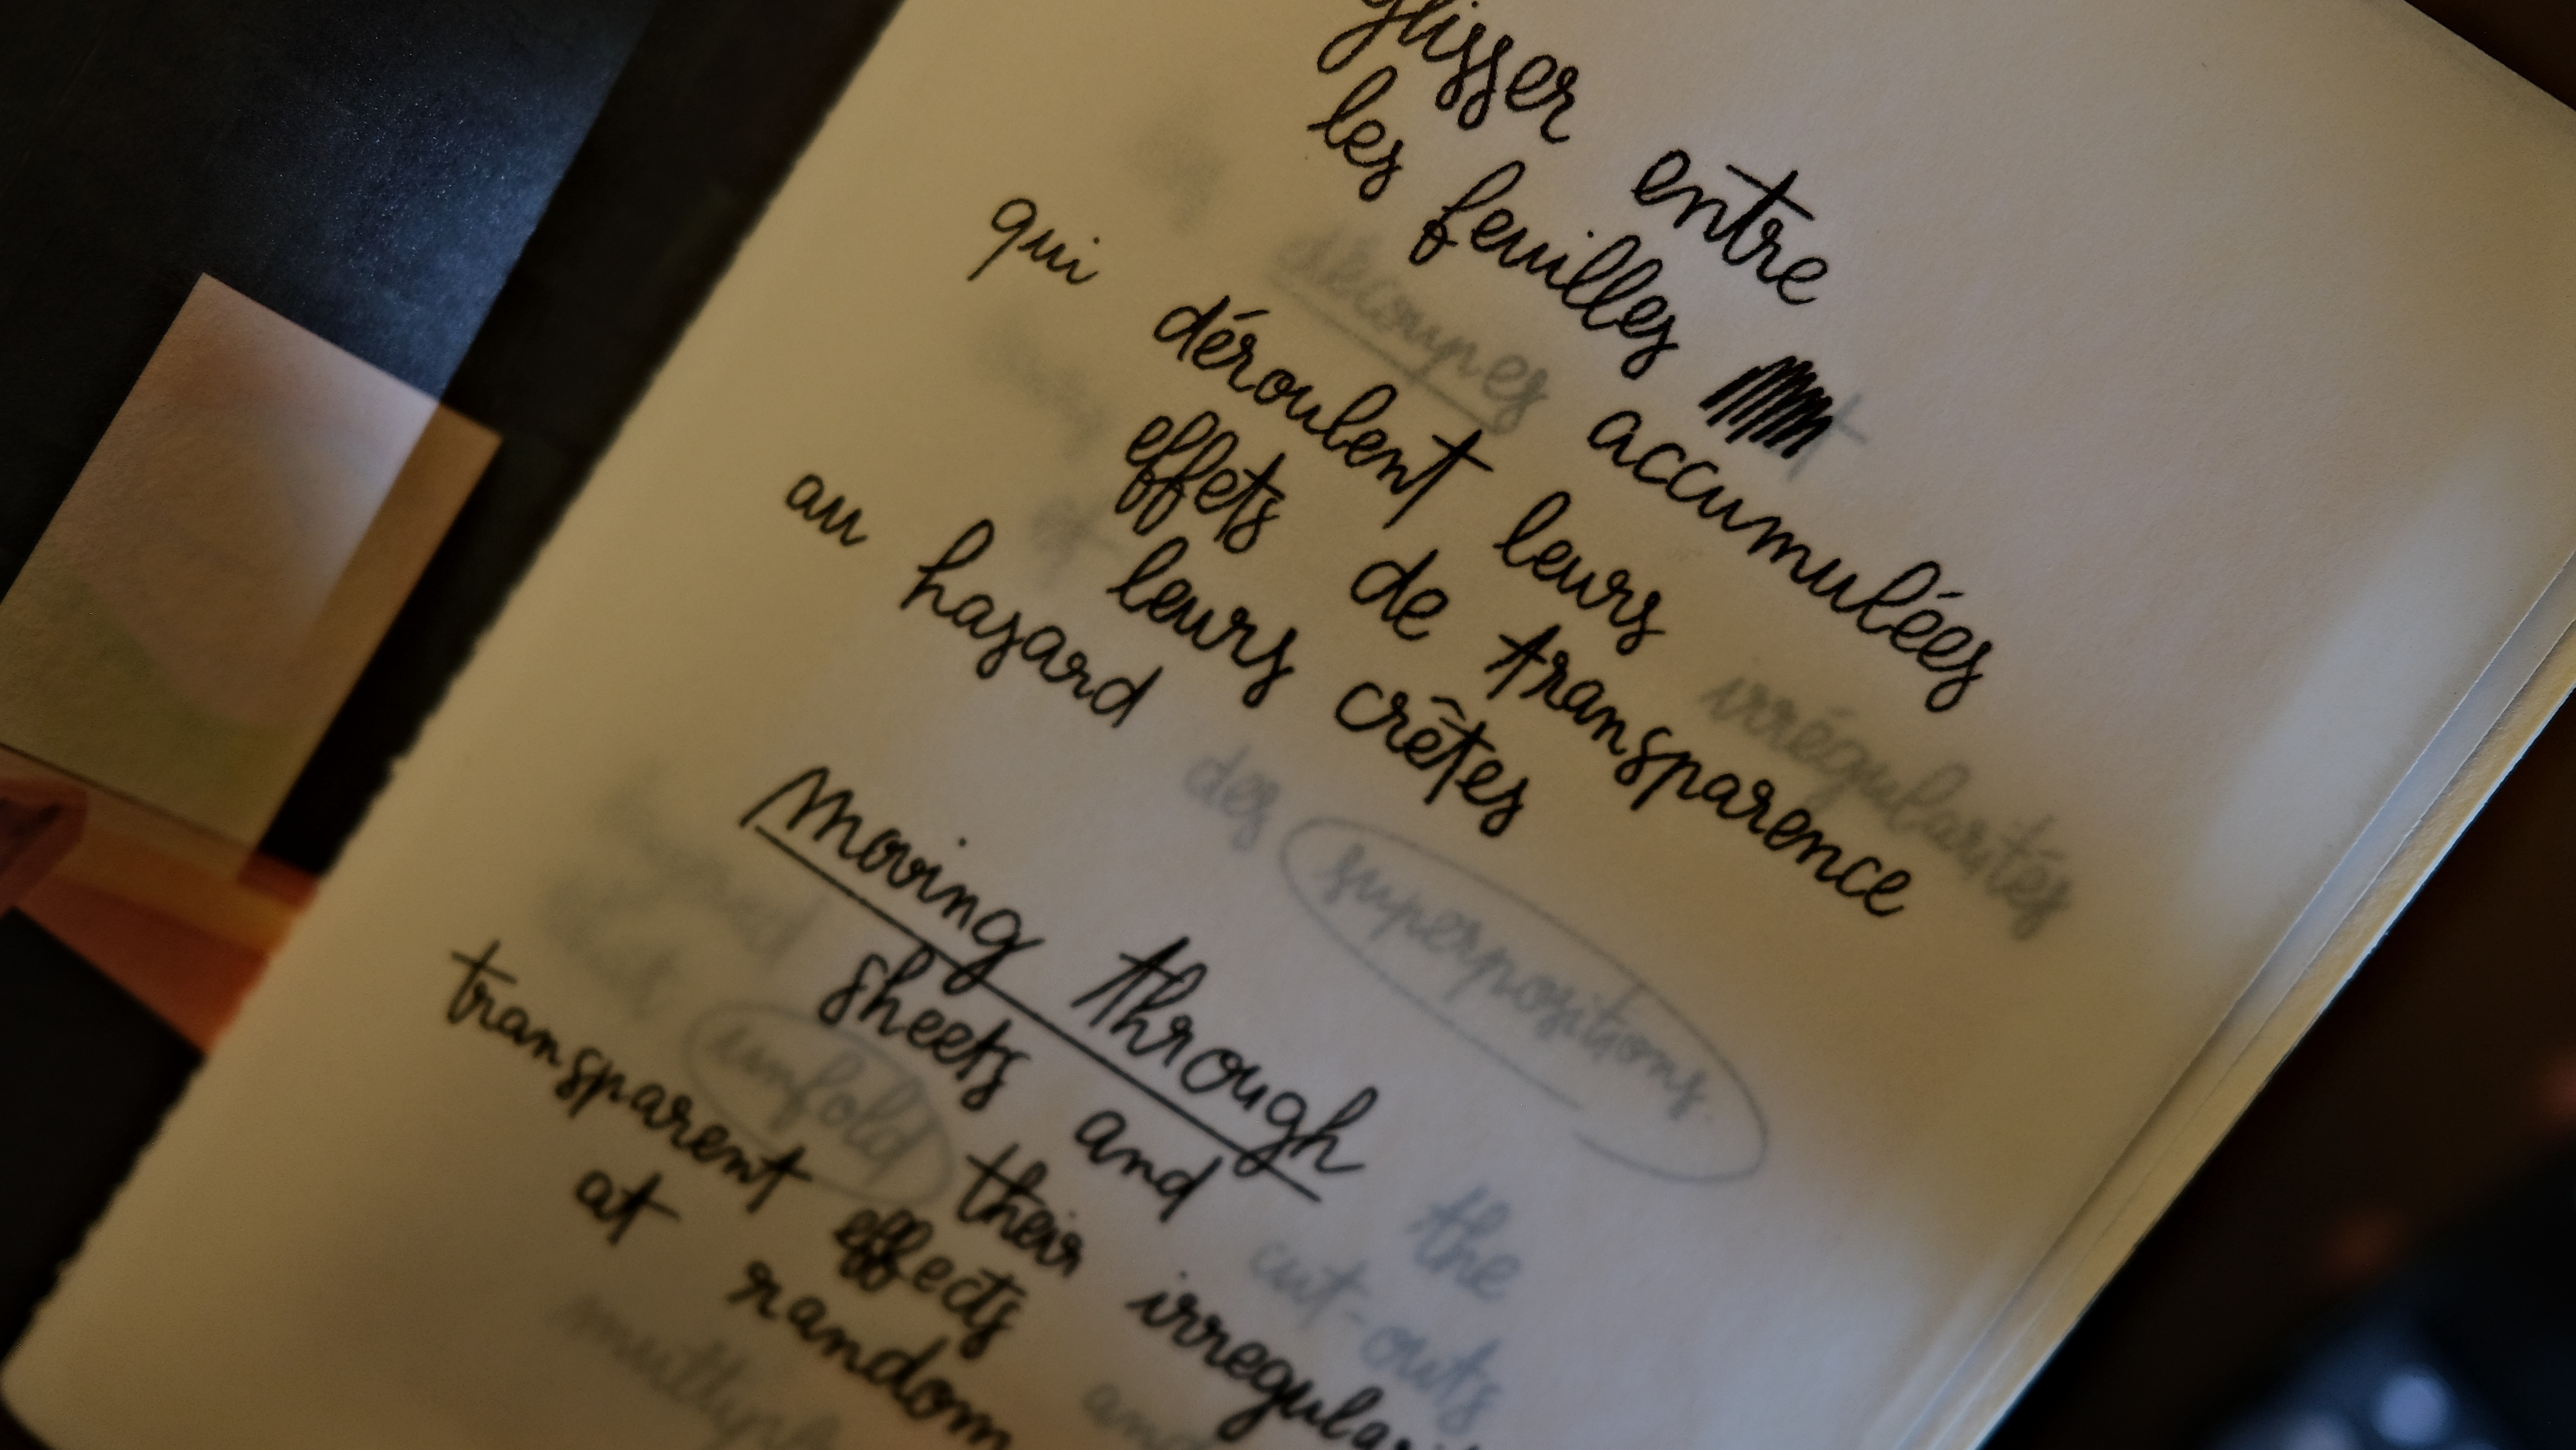 glisser entre
les feuilles
découpes accumulées
qui déroulent leurs irrégularités
effets de transparence
et leurs crêtes
au hasard des superpositions.
Moving through the
sheets and cut-outs
unfold their irregular
transparent effects and
at random